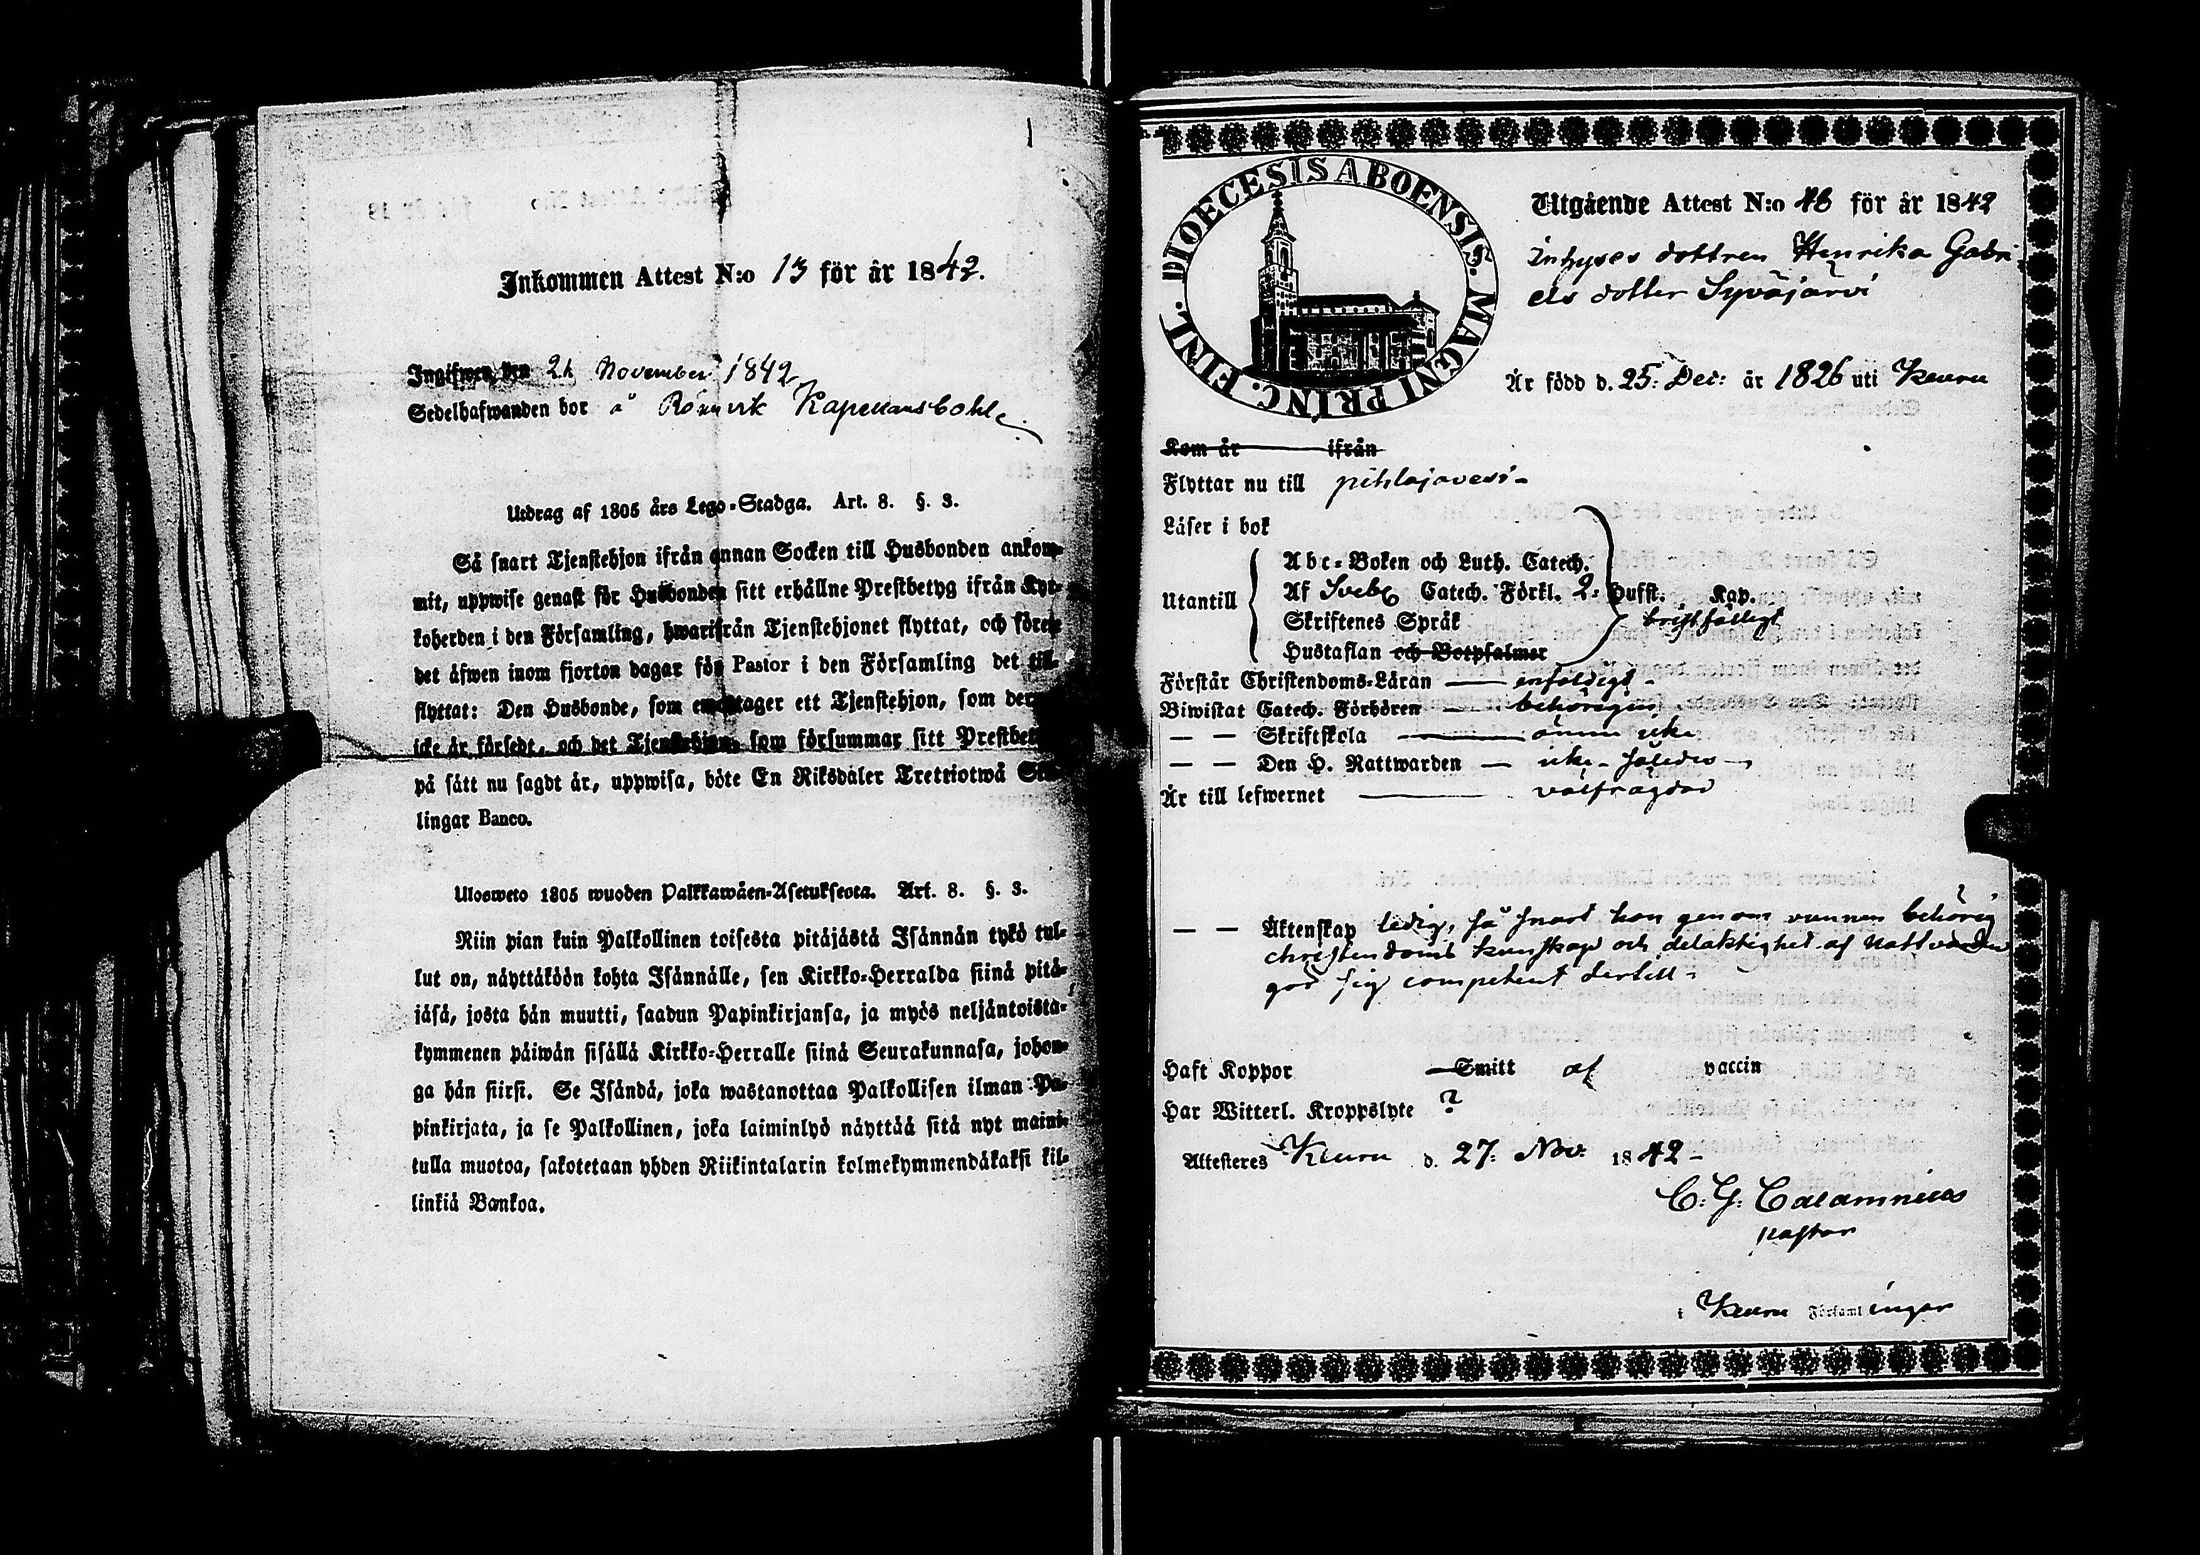 1
Inkommen Attest N:o 13 för år 1842.
Ingifwen den 21 November 1842
Sedelhafwanden bor å Kapellansbohle
Utdrag af 1805 års Lego-Stadga. Art. 8. §. 3.
Så snart Tjenstehjon ifrån annan Socken till Husbonden ankom-
mit, uppwise genast för Husbonden sitt erhållne Prestbetyg ifrån Kyr-
koherden i den Församling, hwarifrån Tjenstehjonet flyttat, och förete
det äfwen inom fjorton dagar för Pastor i den Församling det till-
flyttat: Den Husbonde, som emottager ett Tjenstehjon, som der
icke är försedt, och det Tjenstehjon, som försummar sitt Prestbetyg
på sätt nu sagdt är, uppwisa, böte En Riksdaler Trettiotwå Skil-
lingar Banco.
Ulosweto 1805 wuoden Palkkawäen-Asetuksesta. Art. 8. §. 3.
Niin pian kuin Palkollinen toisesta pitäjästä Isännän tykö tul-
lut on, näyttäköön kohta Isännälle, sen Kirkko-Herralda siinä pitä-
jäsä, josta hän muutti, saadun Papinkirjansa, ja myös neljäntoista-
kymmenen päiwän sisällä Kirkko-Herralle siinä Seurakunnasa, johon-
ga hän siirsi. Se Isändä, joka wastanottaa Palkollisen ilman Pa-
pinkirjata, ja se Palkollinen, joka laiminlyö näyttää sitä nyt maini-
tulla muotoa, sakotetaan yhden Riikintalarin kolmekymmendäkaksi kil-
linkiä Bankoa.
DIOECESIS ABOENSIS. MAGNI PRINC. FINL.
Utgående Attest N:o 46 för år 1842
inhyses dottren Henrika Gabri-
els dotter Syväjärvi
Är född d. 25: Dec: år 1826 uti Keuru
Kom år ifrån
Flyttar nu till pihlajavesi
Läser i bok
Abc-Boken och Luth. Catech.
Utantill
Af Sveb Catech. Förkl. 2: Hufst. Kap.
Skriftenes Språk bristfälligt
Hustaflan och Botpsalmer
Förstår Christendoms-Läran enfaldigt
Biwistat Catech. Förhören behörigen
— — Skriftskola ännu icke
— — Den H. Nattwarden icke således
Är till lefwernet välfrägdad
— — Äktenskap ledig, så snart hon genom vunnen behörig
christendoms kunskap och delaktighet af Nattvarden
gör sig competent dertill
Haft Koppor Smitt af vaccin
Har Witterl. Kroppslyte ?
Attesteres Keuru d. 27: Nov: 1842
C. G. Calamnius
pastor
i Keuru Församlingar